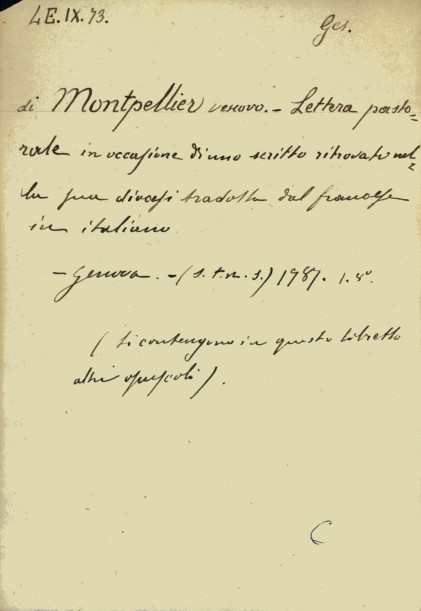 4E.IX.43.
Ges.
di Montpellier vescovo. - Lettera pasto=
rale in occasione di uno scritto ritrovato nel=
la sua diocesi tradotta dal francese
in italiano
- Genova. - (s. t. n. s.) 1787. 1. 8°.
(Si contengono in questo libretto
altri opuscoli).
C